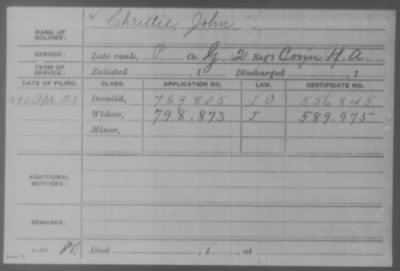 NAME OF SOLDIER: Christie, John
SERVICE: Late rank, P Co. G, 2 Reg't Conn H.A.
TERM OF SERVICE: Enlisted , 1 Discharged , 1
DATE OF FILING. CLASS. APPLICATION NO. LAW. CERTIFICATE NO.
1890 Apr. 21 Invalid, 769805 556845
Widow, 798.873 589.975
Minor,
ADDITIONAL SERVICES:
REMARKS:
Died , 1 , at